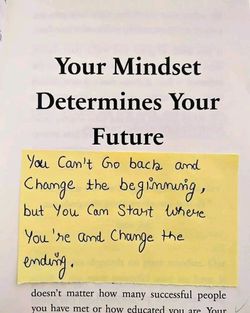 Your Mindset
Determines Your
Future
You Can't Go back and
Change the beginning,
but You Can Start where
You're and Change the
ending.
doesn't matter how many successful people
you have met or how educated you are. Your